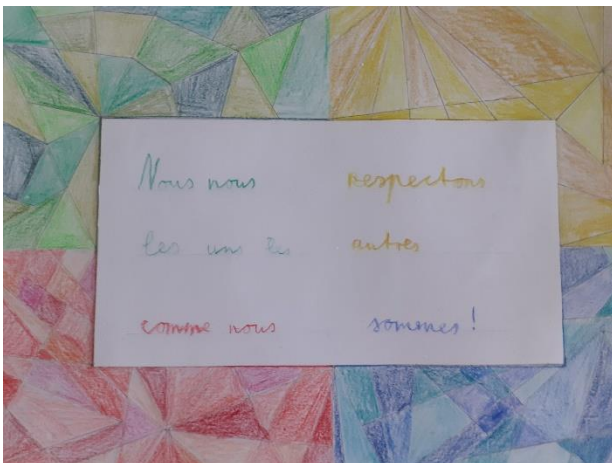 Nous nous respectons
les uns les autres
comme nous sommes!